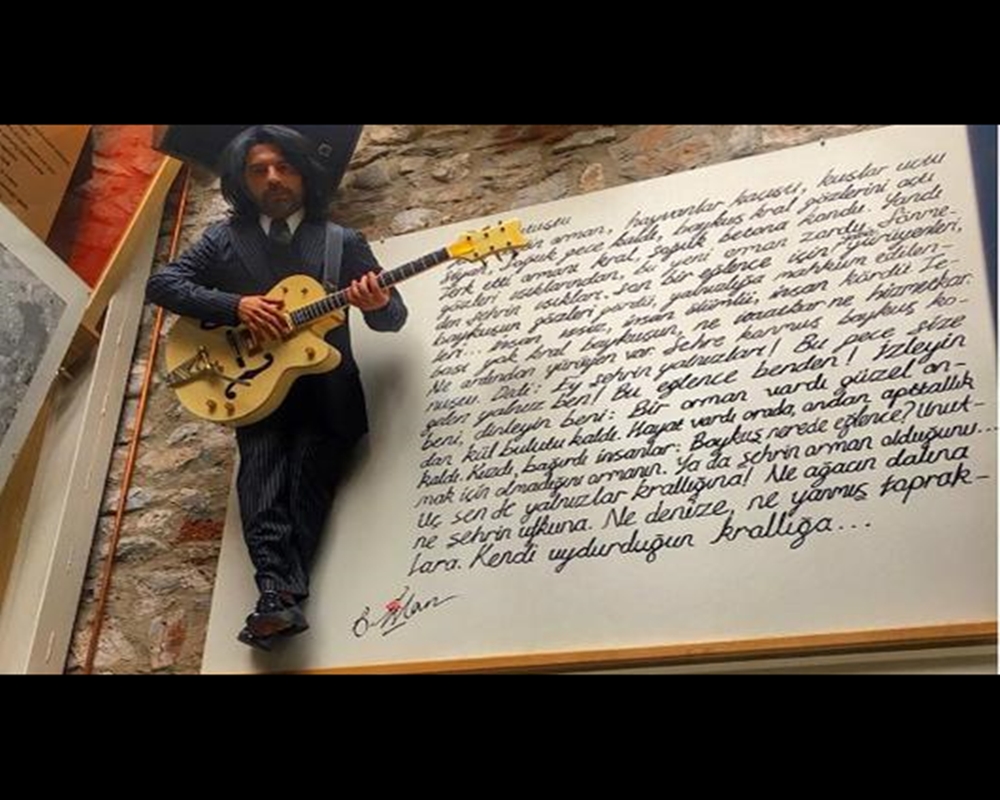 orman, hayvanlar kaçıştı, kuşlar uçtu
Soğuk gece kaldı, baykuş kral gözlerini açtı
Terk etti ormanı kral, soğuk betona kondu. Yandı
gözleri ışıklarından, bu yeni orman zordu. Sönme-
den şehrin ışıkları, son bir eğlence için yürüyenleri,
baykuşun gözleri gördü, yalnızlığa mahkum edilen-
leri... İnsan ıssız, insan ölümlü, insan kördü. Te-
bası yok kral baykuşun, ne izzatlar ne hizmetkar.
Ne ardından yürüyen var. Şehre konmuş baykuş ko-
nuşsu. Dedi: Ey şehrin yalnızları! Bu gece size
gelen yalnız ben! Bu eğlence benden! İzleyin
beni, dinleyin beni: Bir orman vardı güzel on-
dan kül bulutu kaldı. Hayat vardı orada, ondan aptallık
kaldı. Kızdı, bağırdı insanlar: Baykuş nerede eğlence? Unut-
mak için olmadığını ormanın. Ya da şehrin orman olduğunu...
Uç sen de yalnızlar krallığına! Ne ağacın dalına
ne şehrin ufkuna. Ne denize, ne yanmış toprak-
lara. Kendi uydurduğun krallığa...